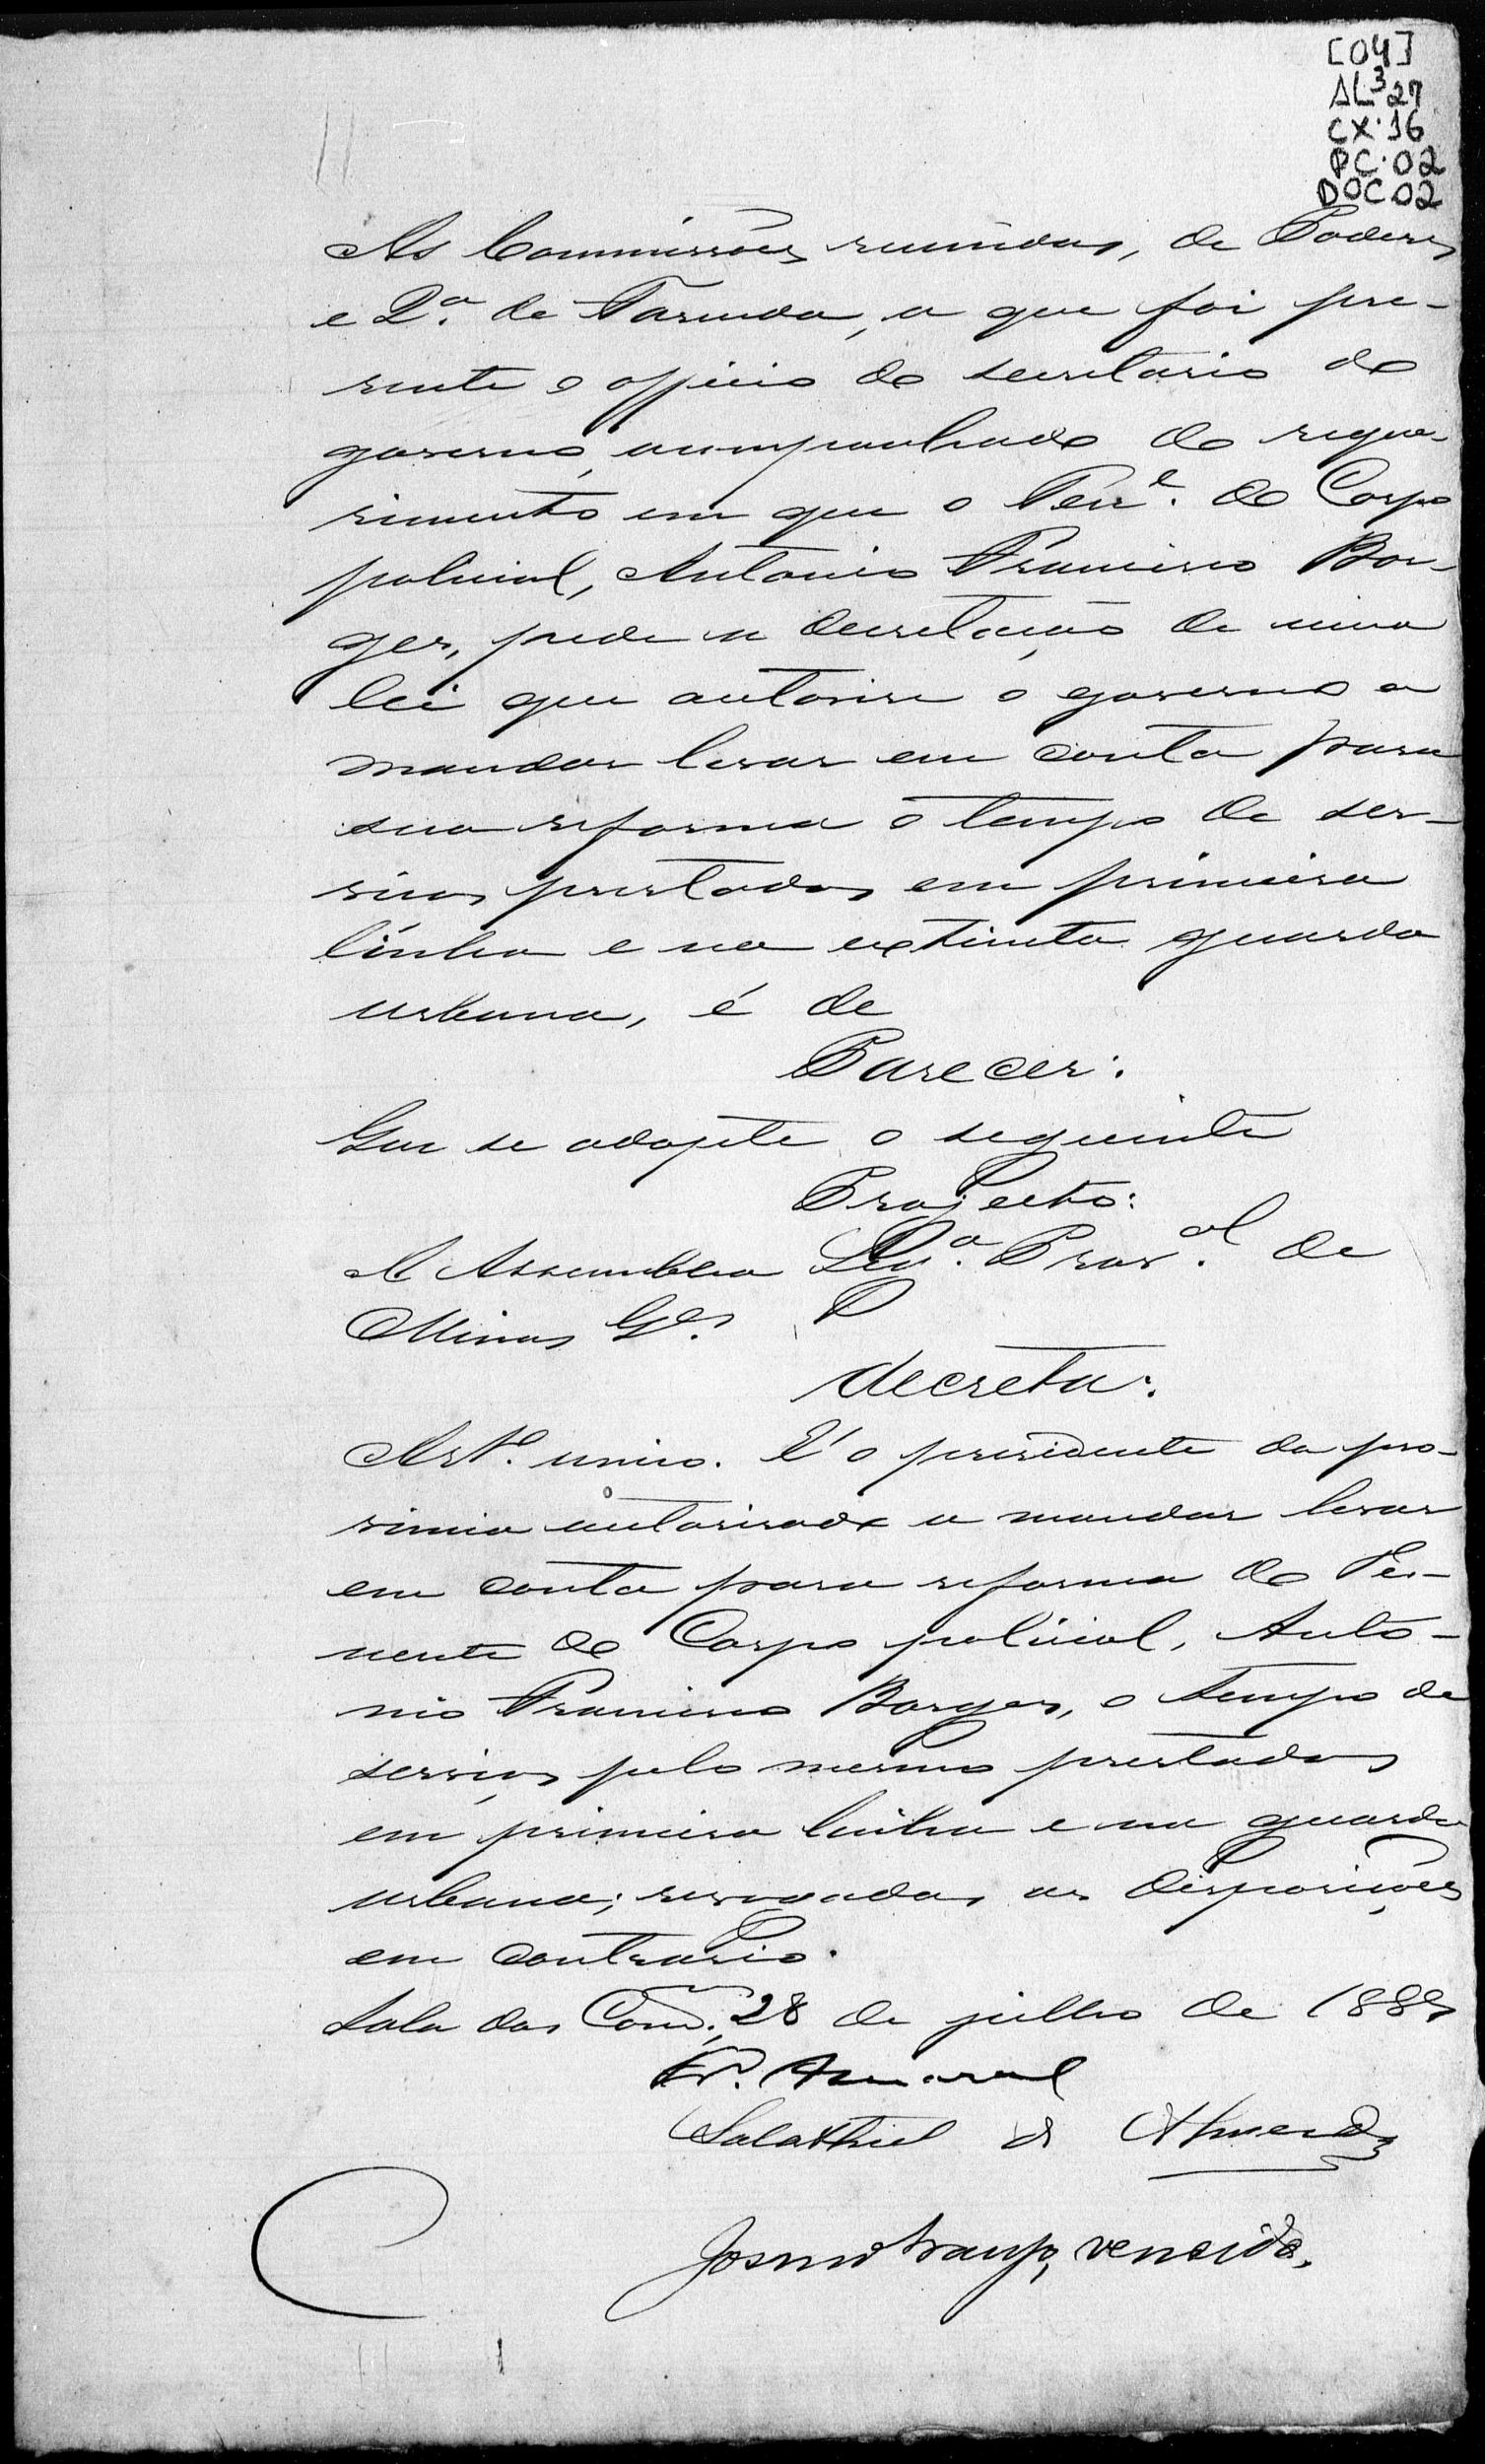 [04]
AL³27
CX·16
PC·02
DOC02
As Commissões reunidas, de Poderes
e 2.ª de Fasenda, a que foi pre-
sente o officio do secretario do
governo, acompanhado do reque-
rimento em que o Ten.e do Corpo
policial, Antonio Francisco Bor-
ges, pede a decretação de uma
lei que autorise o governo a
mandar levar em conta para
sua reforma o tempo de ser-
viços prestados em primeira
linha e na extincta guarda
urbana, é de
Parecer:
Que se adopte o seguinte
Projecto:
A Assemblea Leg.a Prov.al de
Minas G.es
decreta:
Art.o unico. É o presidente da pro-
vincia autorisado a mandar levar
em conta para reforma do Te-
nente do Corpo policial, Anto-
nio Francisco Borges, o tempo de
serviços pelo mesmo prestados
em primeira linha e na guarda
urbana; revogadas as disposições
em contrario.
Sala das Com., 28 de julho de 188
Amaral
Salathiel de Almeida
vencido.